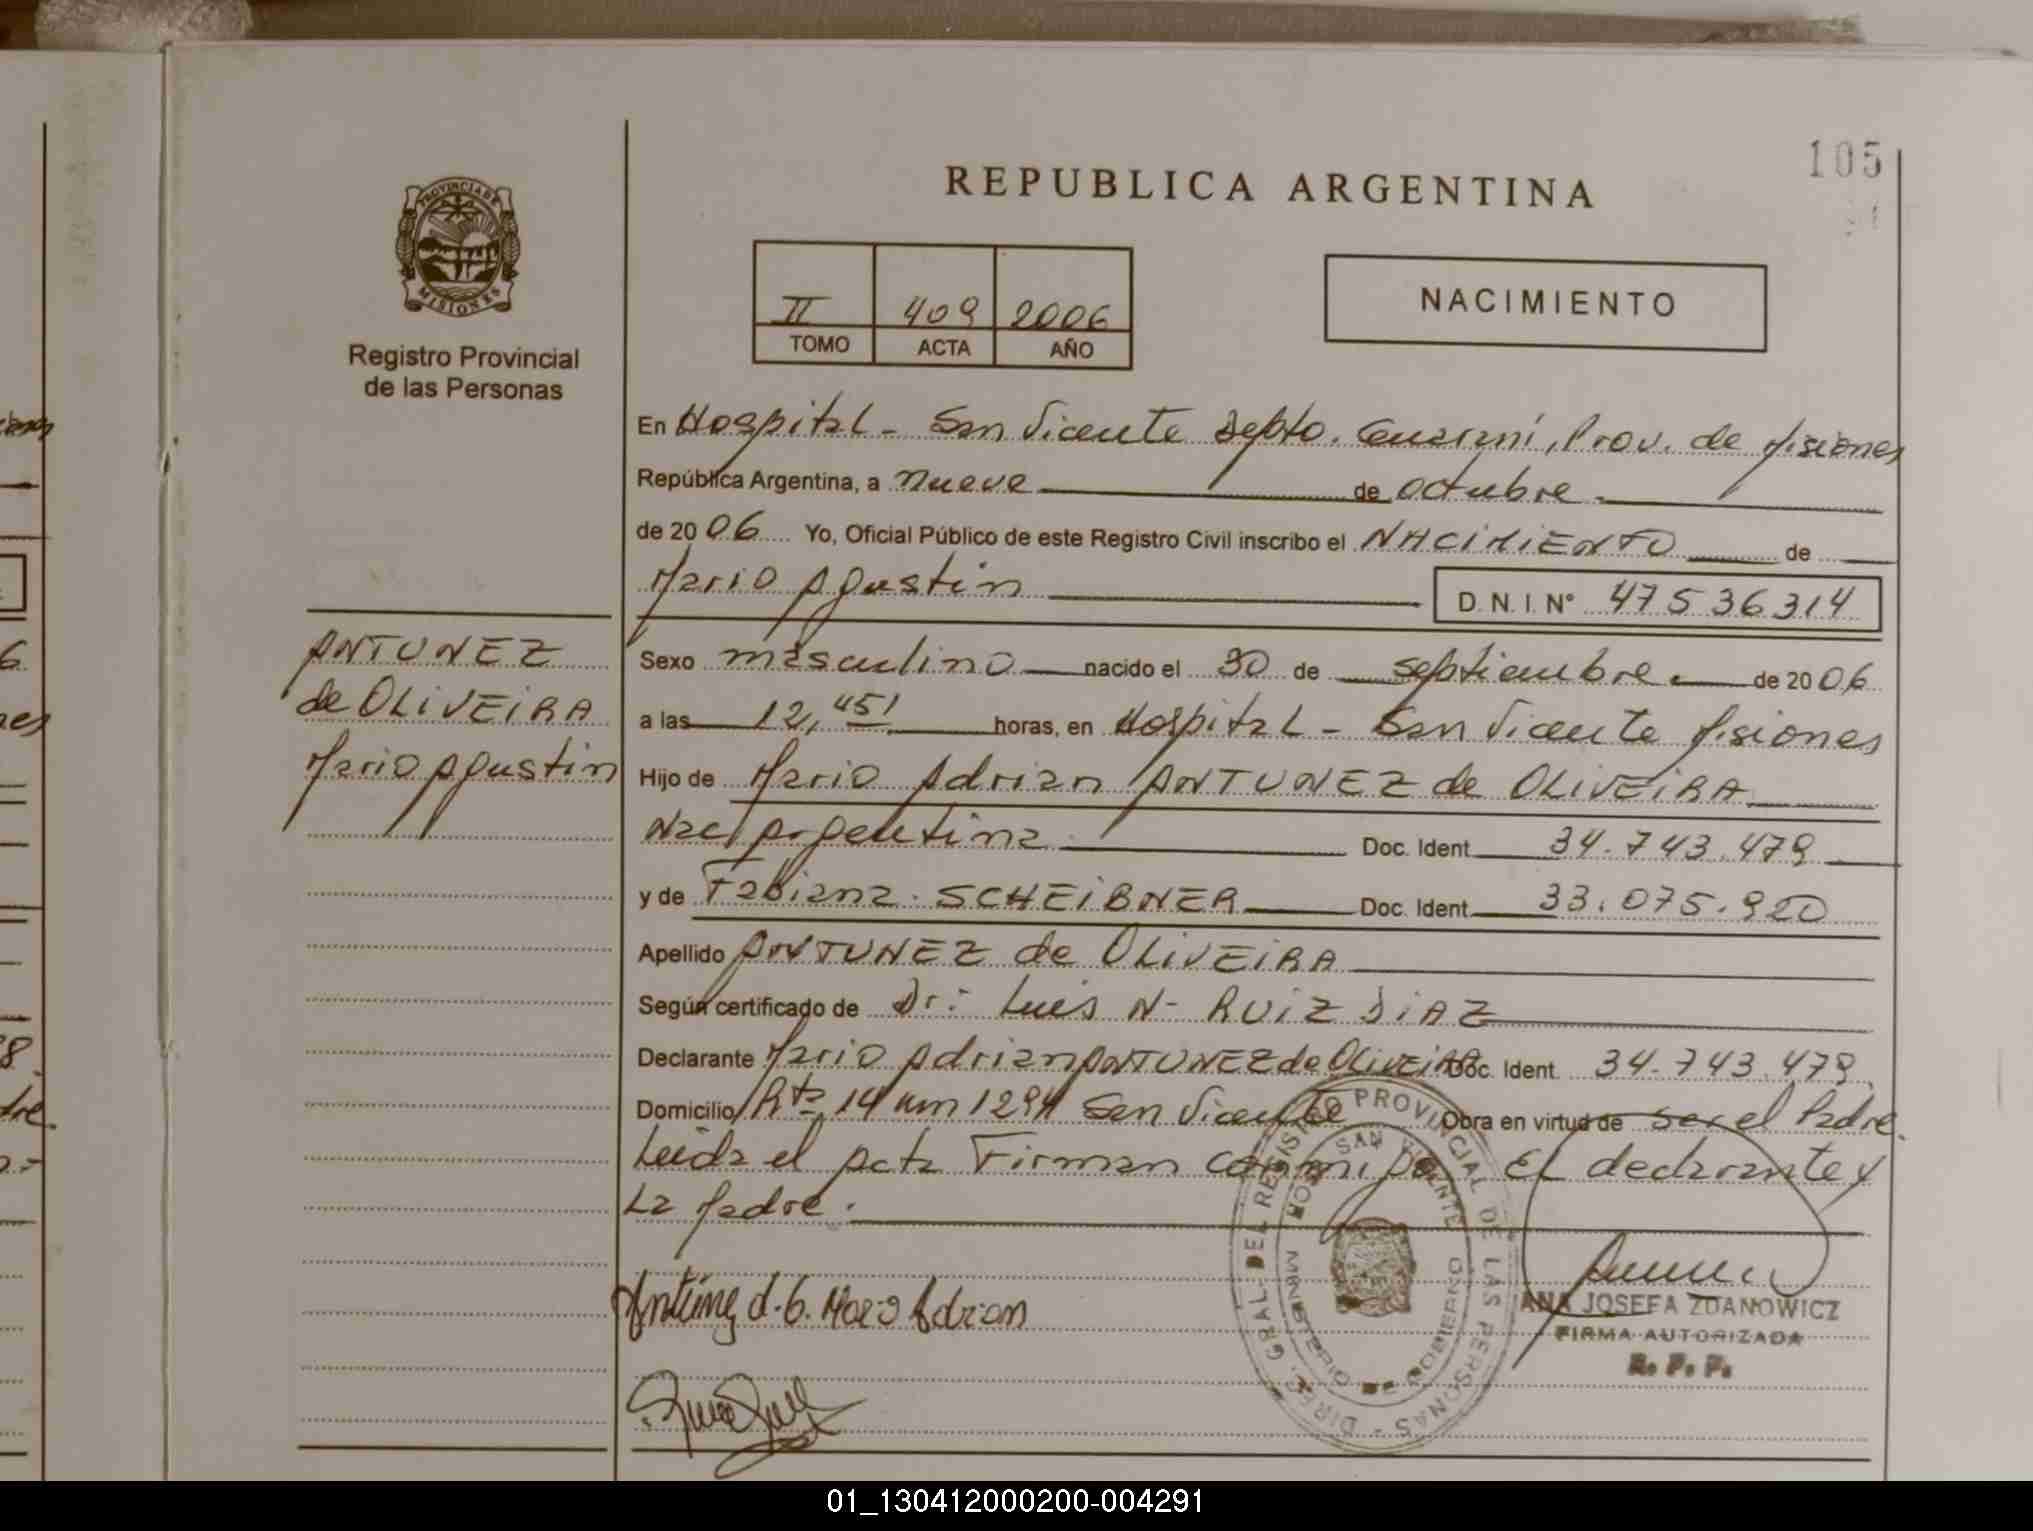 105
REPUBLICA ARGENTINA
PROVINCIA DE
MISIONES
Registro Provincial
de las Personas
II 409 2006
TOMO ACTA AÑO
NACIMIENTO
En Hospital - San Vicente Depto. Guaraní, Prov. de Misiones
República Argentina, a nueve de octubre
de 2006 Yo, Oficial Público de este Registro Civil inscribo el NACIMIENTO de
Mario Agustin D.N.I. N° 47536314
ANTUNEZ
de OLIVEIRA
Mario Agustin
Sexo masculino nacido el 30 de septiembre de 2006
a las 12,45' horas, en Hospital - San Vicente Misiones
Hijo de Mario Adrian ANTUNEZ de OLIVEIRA
Nac Argentina Doc. Ident 34.743.479
y de Fabiana SCHEIBNER Doc. Ident 33.075.920
Apellido ANTUNEZ de OLIVEIRA
Según certificado de Dr: Luis N- RUIZ DIAZ
Declarante Mario Adrian ANTUNEZ de OLIVEIRA Doc. Ident. 34.743.479
Domicilio Rta 14 km 1294 San Vicente Obra en virtud de ser el Padre.
Leida el Acta Firman conmigo El declarante y
La Madre.
Antúnez d.O. Mario Adrian
DIREC. GRAL. DEL REGISTRO PROVINCIAL DE LAS PERSONAS
MINISTERIO DE GOBIERNO
SAN VICENTE
ANA JOSEFA ZDANOWICZ
FIRMA AUTORIZADA
R. P. P.
01_130412000200-004291